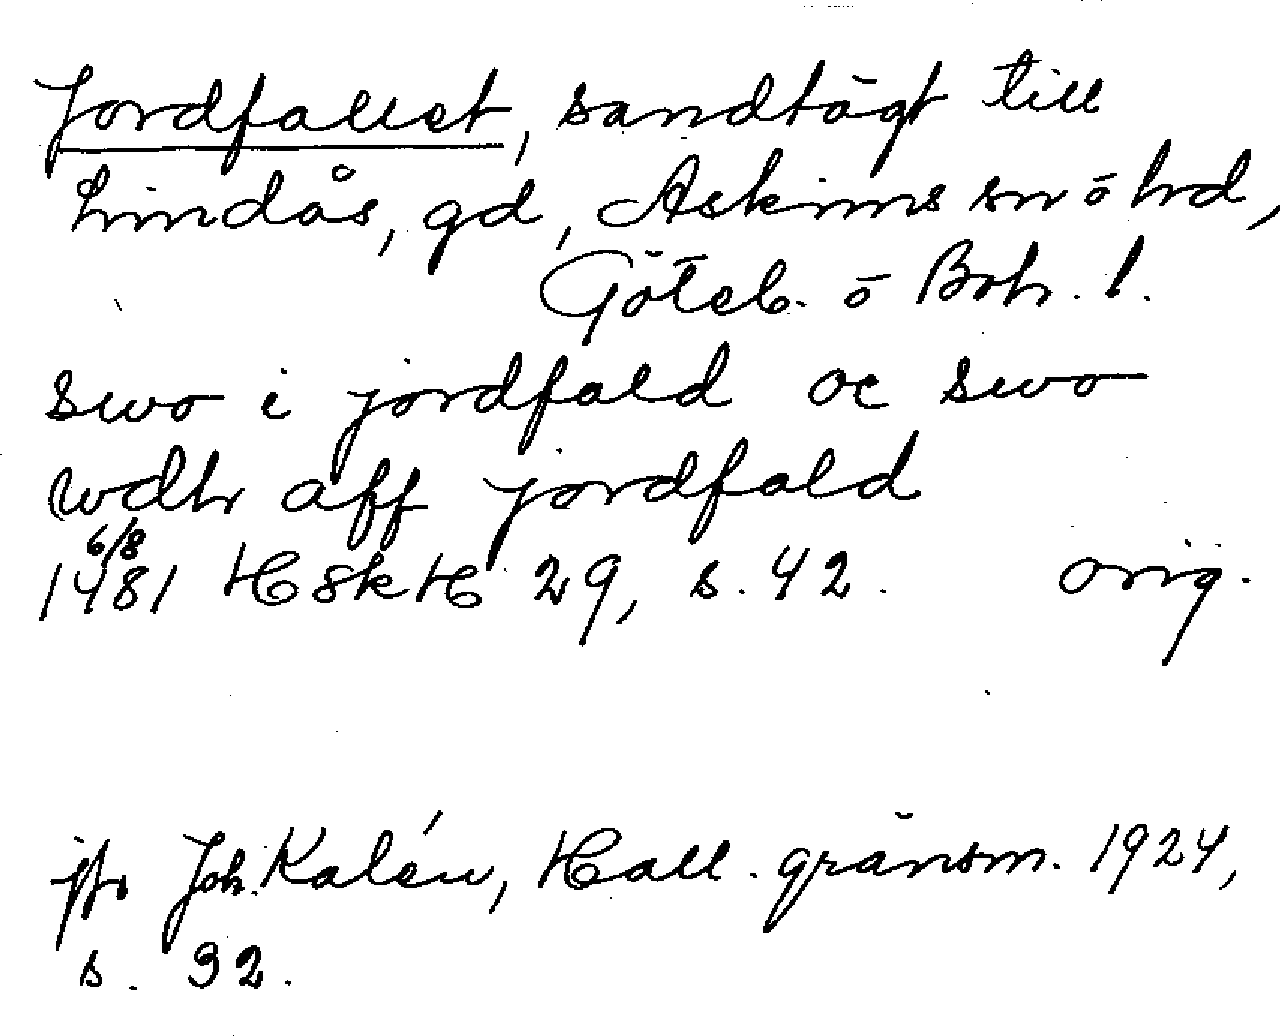 Jordfallet, sandtägt till
Lindås, gd, Askims sn ō hd,
Göteb. ō Boh. l.
swo i jordfald oc swo
wdhr aff jordfald
6/8
1481 HSkH 29, s. 42. orig.
jfr Joh. Kalén, Hall. gränsm. 1924,
s. 32.